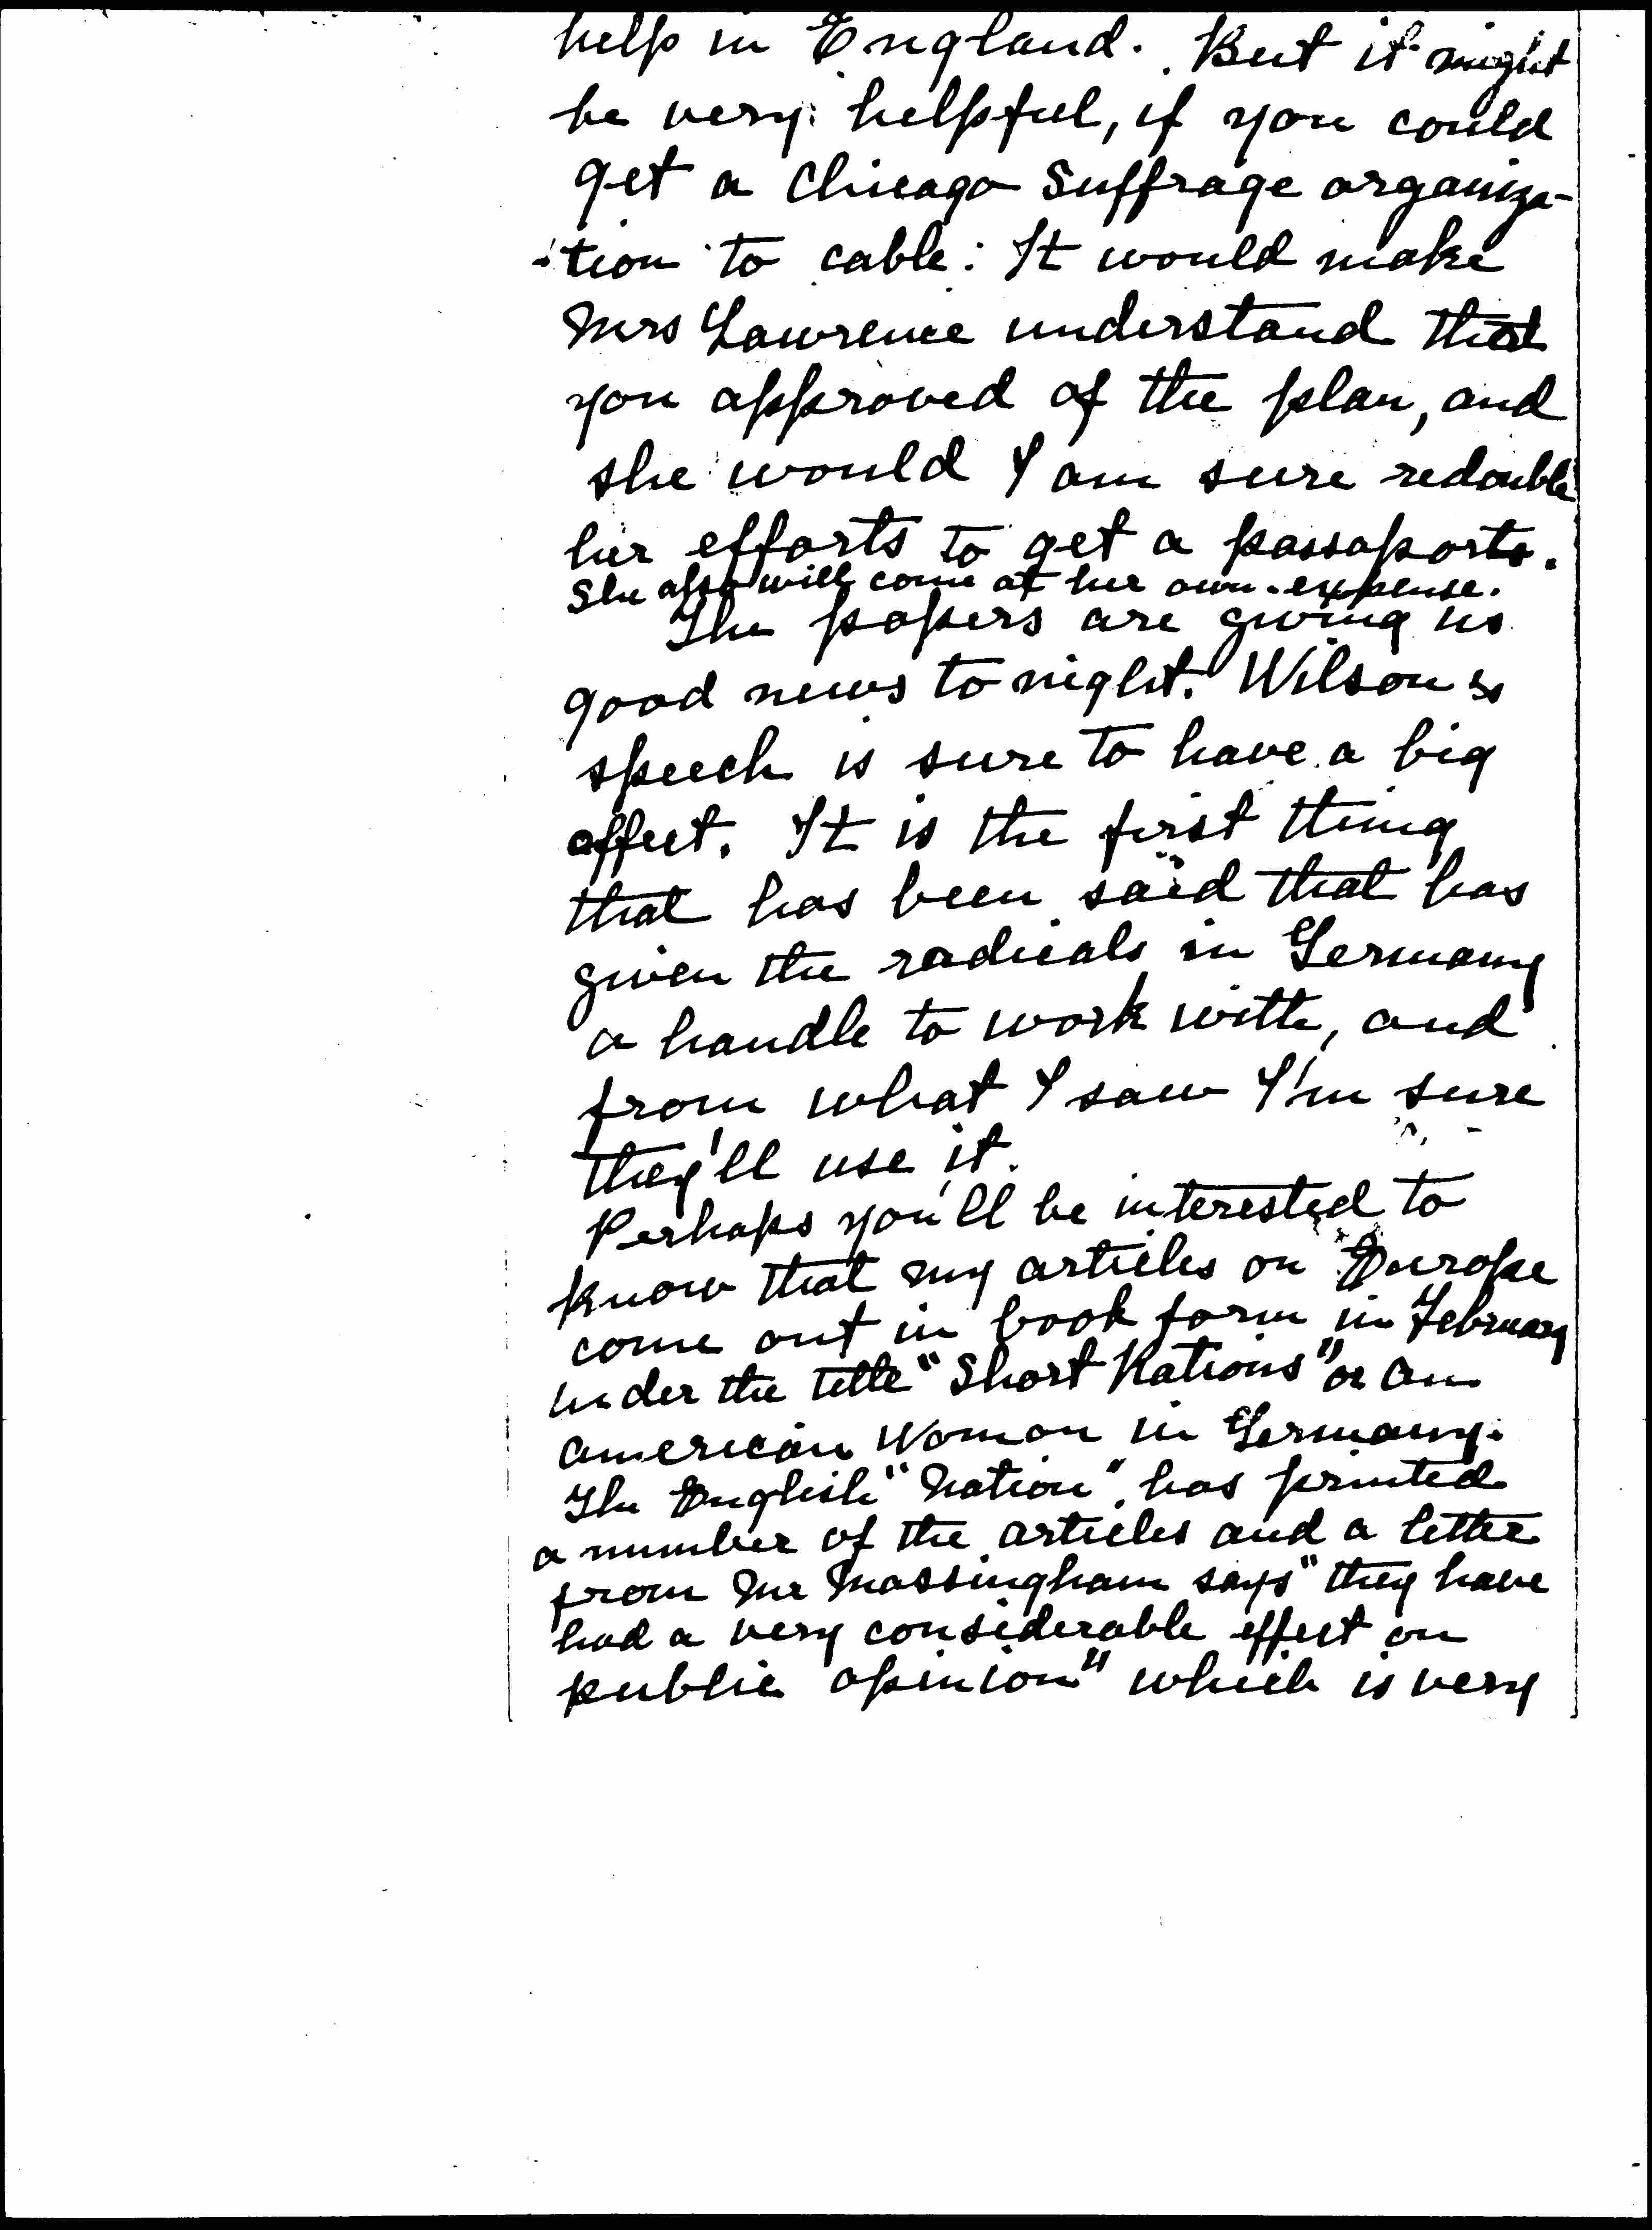 help in England. But it might
be very helpful, if you could
get a Chicago Suffrage organiza-
-tion to cable: It would make
Mrs Lawrence understand that
you approved of the plan, and
she would I am sure redouble
her efforts to get a passaports.
She also will come at her own expense.
The papers are giving us
good news to night. Wilson's
speech is sure to have a big
affect. It is the first thing
that has been said that has
given the radicals in Germany
a handle to work with, and
from what I saw I'm sure
they'll use it.
Perhaps you'll be interested to
know that my articles on Europe
come out in book form in February
under the title "Short Rations" or An
american Woman in Germany.
The English "Nation" has printed
a number of the articles and a letter
from Mr Massingham says "they have
had a very considerable effect on
public opinion" which is very